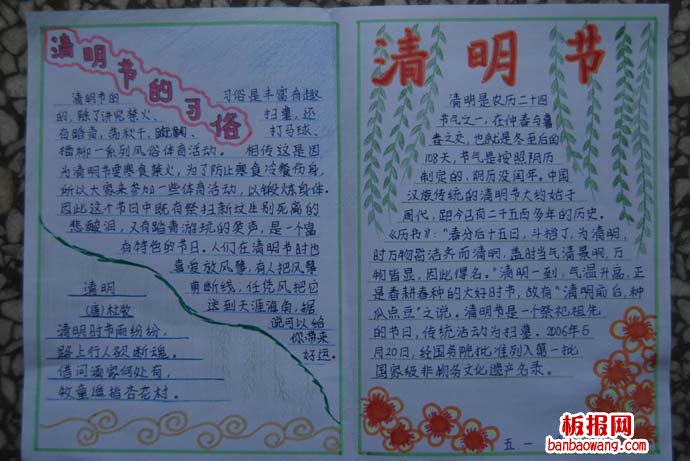 清明节的习俗
清明节的 习俗是丰富有趣
的,除了讲究禁火、 扫墓,还
有踏青、荡秋千、蹴鞠、 打马球、
插柳一系列风俗体育活动。 相传这是因
为清明节要寒食禁火,为了防止寒食冷餐伤身,
所以大家来参加一些体育活动,以锻炼身体。
因此这个节日中既有祭扫新坟生别死离的
悲酸泪,又有踏青游玩的笑声,是一个富
有特色的节日。人们在清明节时也
喜爱放风筝,有人把风筝
剪断线,任凭风把它
送到天涯海角,据
说可以给
你带来
好运。
清明
(唐)杜牧
清明时节雨纷纷,
路上行人欲断魂。
借问酒家何处有,
牧童遥指杏花村。
清明节
清明是农历二十四
节气之一,在仲春与暮
春之交,也就是冬至后的
108天,节气是按照阴历
制定的,阴历没闰年。中国
汉族传统的清明节大约始于
周代,距今已有二千五百多年的历史。
《历书》:“春分后十五日,斗指丁,为清明,
时万物皆洁齐而清明,盖时当气清景明,万
物皆显,因此得名。”清明一到,气温升高,正
是春耕春种的大好时节,故有“清明前后,种
瓜点豆”之说。清明节是一个祭祀祖先
的节日,传统活动为扫墓。2006年5
月20日,经国务院批准列入第一批
国家级非物质文化遗产名录。
五.一
板报网
banbaowang.com